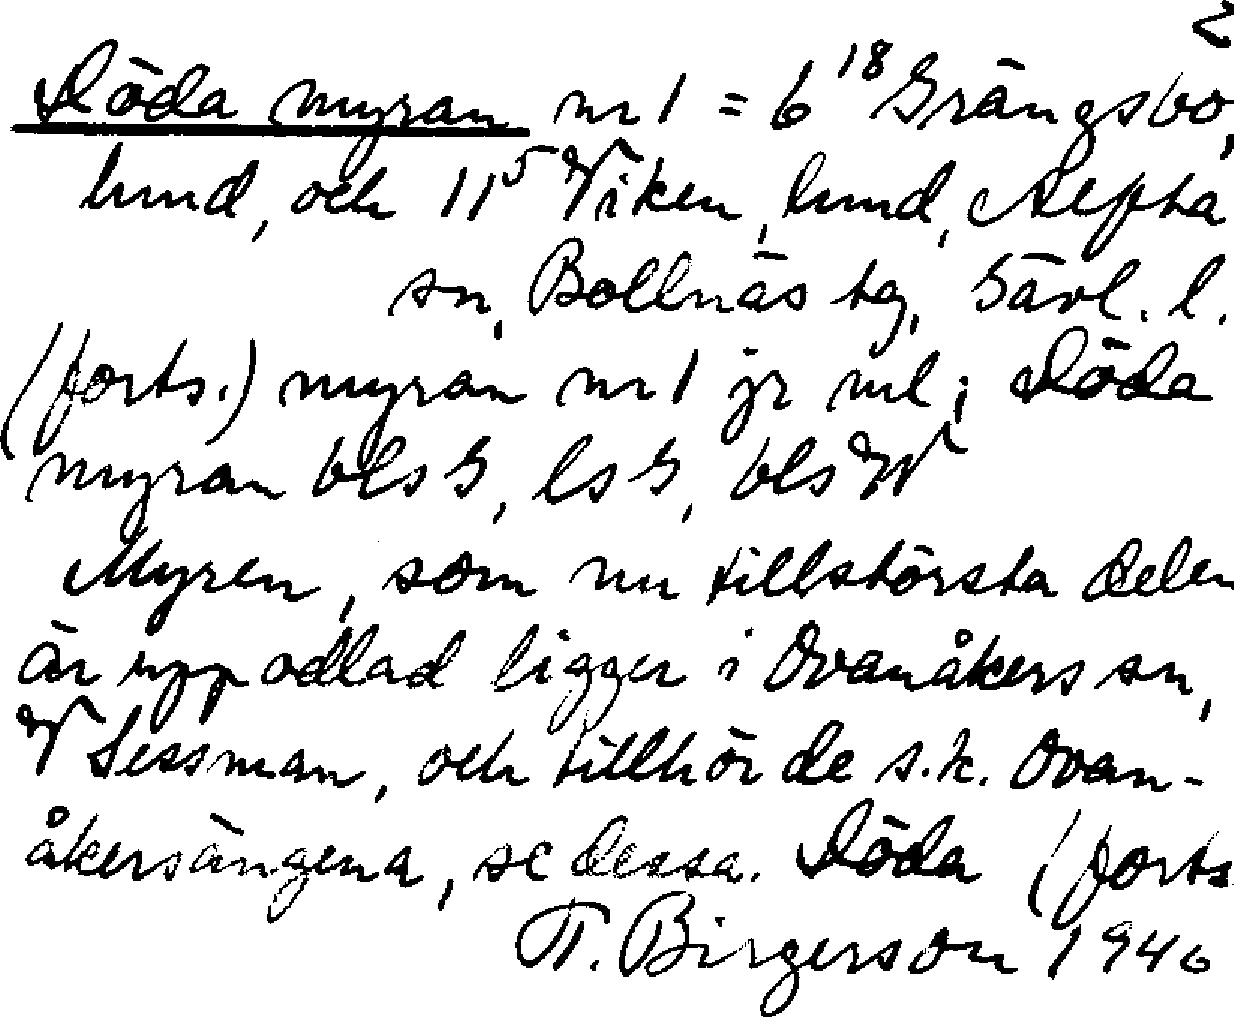 2
Döda myran nr 1 = 6 18 Grängsbo,
lund, och 11 5 Viken, lund, Alfta
sn, Bollnäs tg, Gävl. l.
(forts.) myran nr 1 jr ml; Döda
myran bls G, ls G, bls W
Myren, som nu till största delen
är uppodlad ligger i Ovanåkers sn,
V Sessman, och tillhörde s.k. Ovan-
åkersängena, se dessa. Döda (forts
T. Birgerson 1946